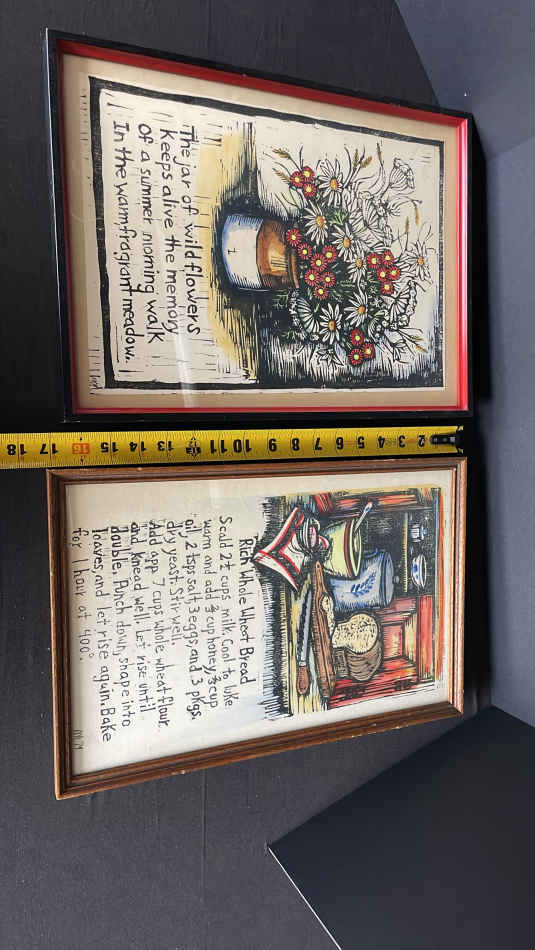 The jar of wildflowers
Keeps alive the memory
Of a summer morning walk
In the warm-fragrant meadow.
2 3 4 5 6 7 8 9 10 11 13 14 15 16 17 18
Rich Whole Wheat Bread
Scald 2½ cups milk. Cool to luke
warm and add ¾ cup honey, ¾ cup
oil, 2 tsps salt, 3 eggs, and 3 pkgs.
dry yeast. Stir well.
Add app. 7 cups whole wheat flour.
and knead well. Let rise until
double. Punch down, shape into
loaves, and let rise again. Bake
for 1 hour at 400°.